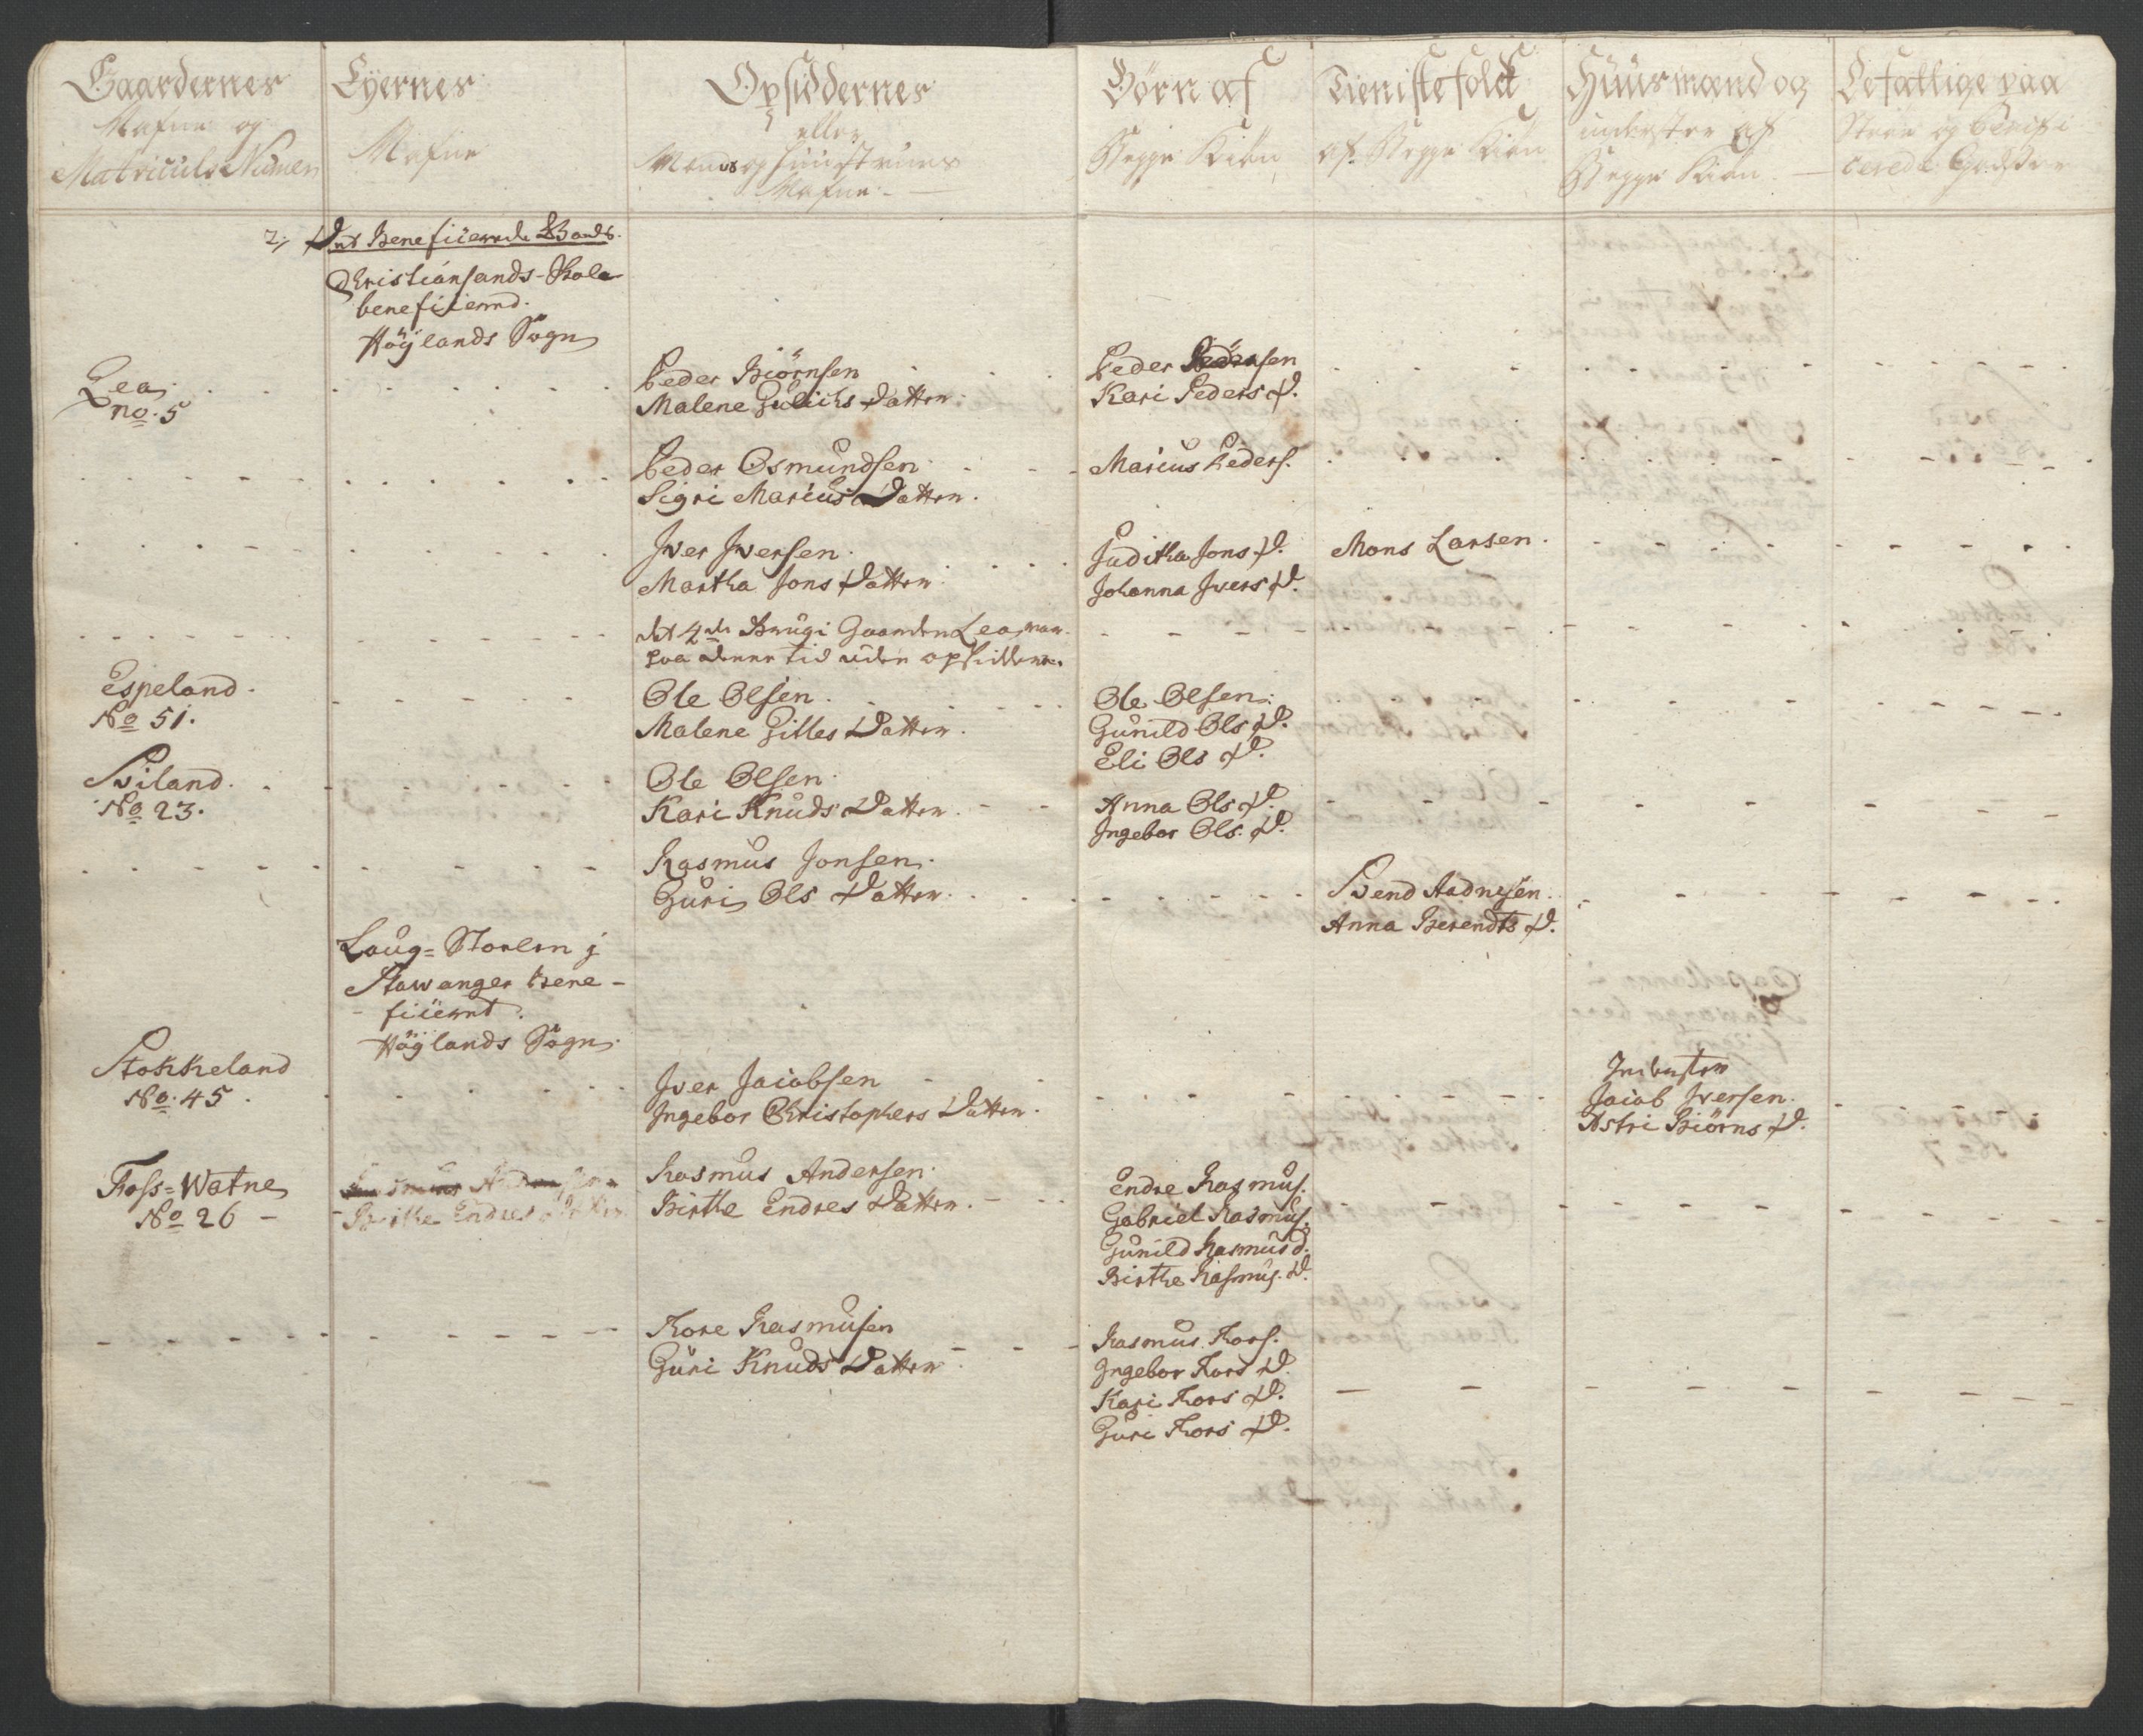 Gaardernes
Nafne og
Matriculs Numer
Eÿernes
Nafne
Opsiddernes
eller
Mands og Huustrues
Nafne
Börn af
Begge Kiön
Tieniste folck
af Begge Kiön
Huusmænd og
inderster af
Begge Kiön
Lefattige paa
2, Det Beneficerede Gods.
Christiansands Skole
beneficerend.
Höÿlands Sogn
Lea
no. 5
Peder Biörnsen
Malene Gulichs Datter
Peder Pedersen
Kari Peders D.
Peder Osmundsen
Sigri Marius Datter.
Marius Peders.
Iver Iversen.
Martha Jons Datter
Juditha Jons D.
Johanna Ivers D.
Mons Larsen.
det 4de Brug i Gaarden Lea, var
paa denne tid uden opsiddere.
Espeland.
No 51.
Ole Olsen.
Malene Gilles Datter.
Ole Olsen.
Gunild Ols D.
Eli Ols D.
Sviland.
No 23.
Ole Olsen
Kari Knuds Datter.
Anna Ols D.
Ingebor Ols. D.
Rasmus Jonsen.
Guri Ols Datter.
Svend Aadnesen.
Anna Berendts D.
Laug-Stolen j
Stawanger bene-
ficeret.
Höÿlands Sogn.
Stokkeland
No. 45
Iver Jacobsen
Ingebor Christophers Datter.
Inderster
Jacob Iversen.
Astri Biörns D.
Foss-Watne
No 26
Rasmus Andersen
Birthe Endres Datter
Rasmus Andersen.
Birthe Endres Datter.
Endre Rasmus.
Gabriel Rasmus.
Gunild Rasmus d.
Birthe Rasmus. D.
Tore Rasmusen
Guri Knuds Datter
Rasmus Tors.
Ingebor Tors D.
Kari Tors D.
Guri Tors D.